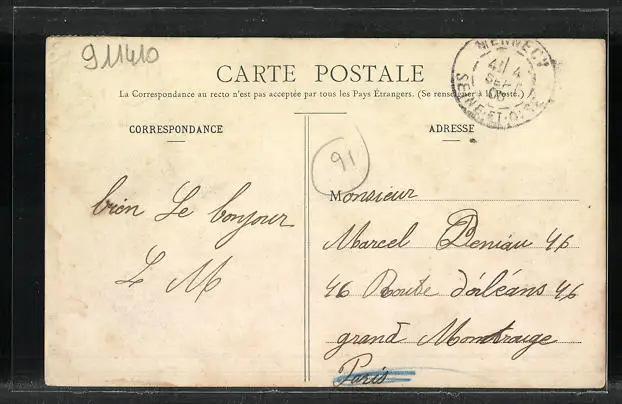 911410
MENNECY
4 SEPT 05
SEINE-ET-OISE
CARTE POSTALE
La Correspondance au recto n'est pas acceptée par tous les Pays Étrangers. (Se renseigner à la Poste).
CORRESPONDANCE
ADRESSE
91
bien Le bonjour
L M
Monsieur
Marcel Deniau 46
46 Route d'orléans 46
grand Montrouge
Paris